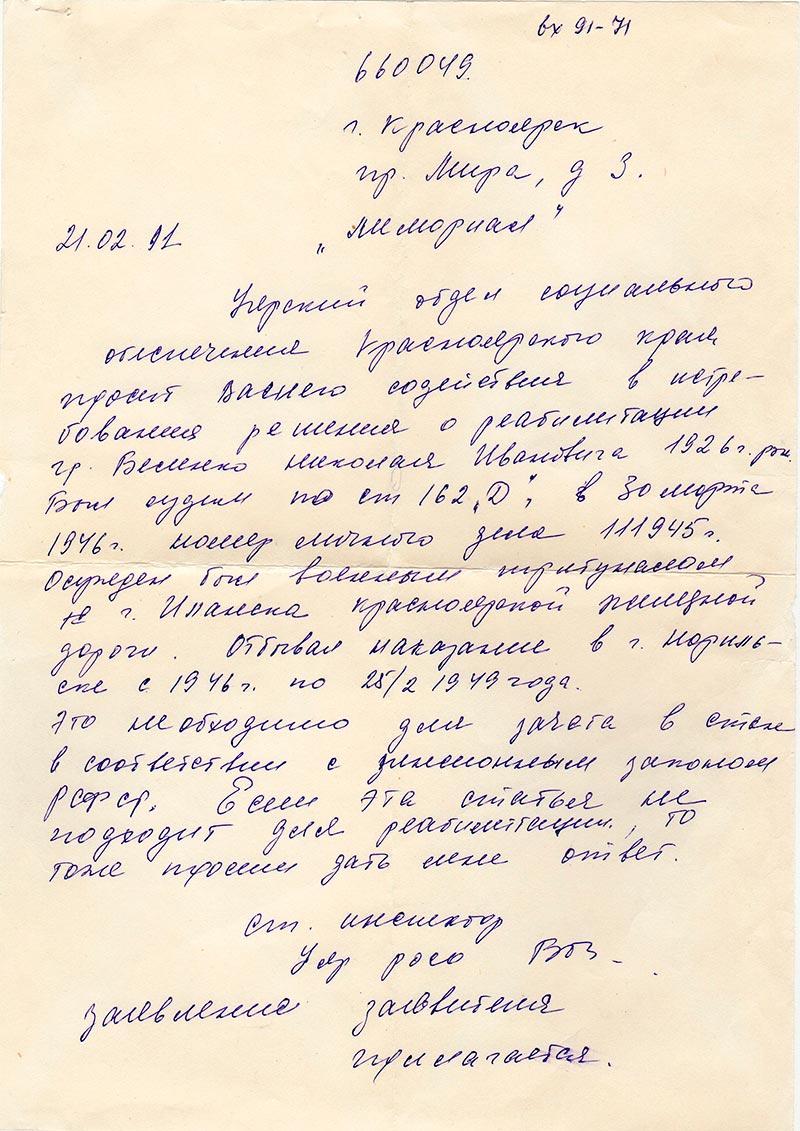 вх 91-71
660049.
г. Красноярск
пр. Мира, д 3.
21.02.91 „Мемориал"
Уярский отдел социального
обеспечения Красноярского края
просит Вашего содействия в истре-
бовании решения о реабилитации
гр. Величко Николая Ивановича 1926 г. рож.
Был судим по ст 162 „Д", в 30 марта
1946 г. номер личного дела 111945 г.
Осужден был военным трибуналом
г. Иланска красноярской железной
дороги. Отбывал наказание в г. Нориль-
ске с 1946 г. по 25/2 1949 года.
Это необходимо для зачета в стаж
в соответствии с пенсионным законом
РСФСР. Если эта статья не
подходит для реабилитации, то
тоже просим дать мне ответ.
ст. инспектор
Уяр росо
Заявление заявителя
прилагается.